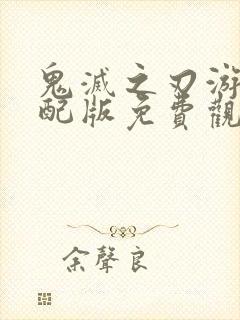 鬼滅之刃游
配版免費觀
余聲良